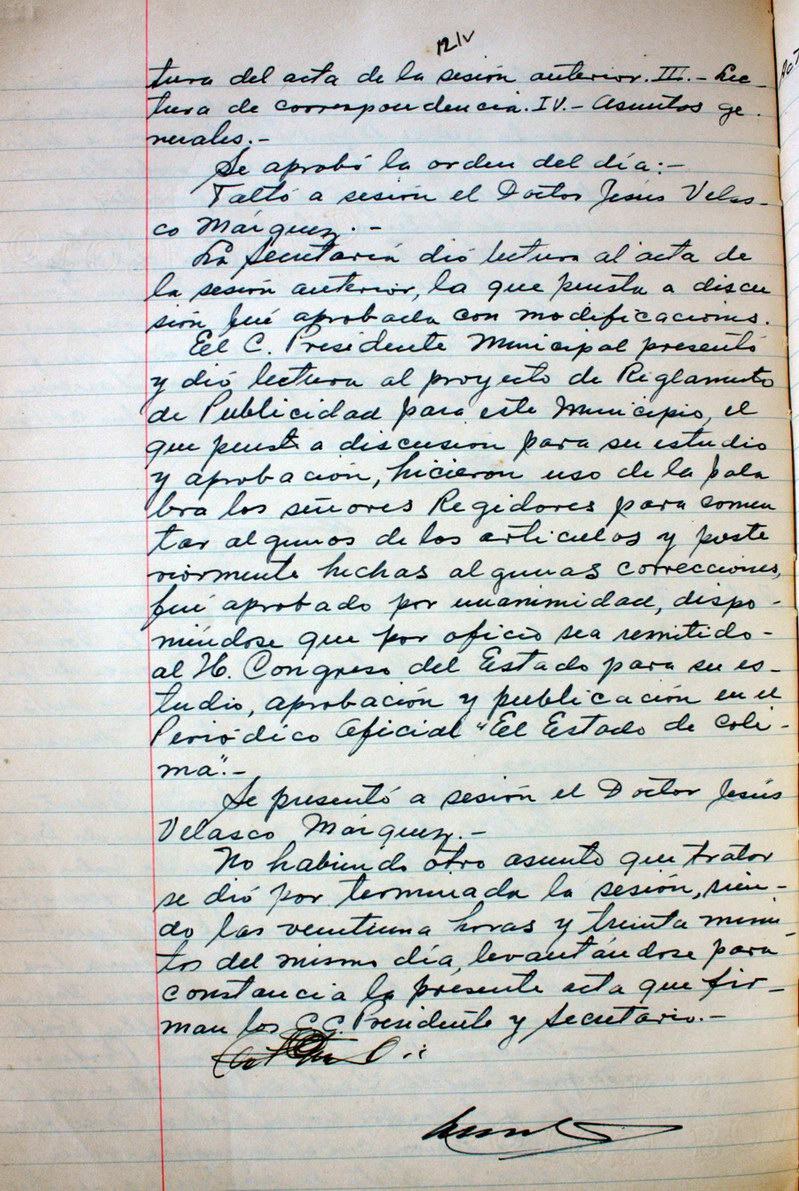 12/v
tura del acta de la sesión anterior. III.- Lec-
tura de correspondencia. IV.- Asuntos ge-
nerales.-
Se aprobó la orden del día:-
Faltó a sesión el Doctor Jesús Velas-
co Márquez.-
La Secretaría dió lectura al acta de
la sesión anterior, la que puesta a discu
sión fué aprobada con modificaciones.
El C. Presidente Municipal presentó
y dió lectura al proyecto de Reglamento
de Publicidad para este Municipio, el
que puesto a discusión para su estudio
y aprobación, hicieron uso de la pala
bra los señores Regidores para comen
tar algunos de los artículos y poste
riormente hechas algunas correcciones,
fué aprobado por unanimidad, dispo-
niéndose que por oficio sea remitido-
al H. Congreso del Estado para su es-
tudio, aprobación y publicación en el
Periódico Oficial "El Estado de Coli-
ma".-
Se presentó a sesión el Doctor Jesús
Velasco Márquez.-
No habiendo otro asunto que tratar
se dió por terminada la sesión, sien-
do las veintiuna horas y treinta minu-
tos del mismo día, levantándose para
constancia la presente acta que fir-
man los C.C. Presidente y Secretario.-